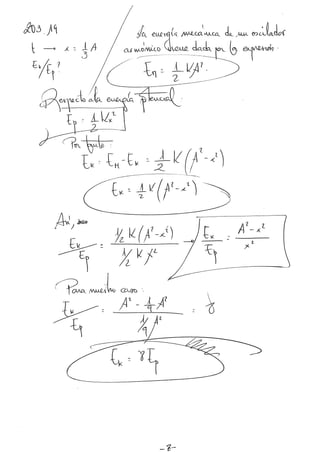 203.19
t → x = 1/3 A
Ek/Ep ?
La energía mecánica de un oscilador
armónico viene dada por la expresión:
Em = 1/2 KA².
Respecto a la energía potencial:
Ep = 1/2 Kx²
Por tanto:
Ek = EM - Ek = 1/2 K (A² - x²)
Ek = 1/2 K (A² - x²)
Así,
Ek/Ep = 1/2 K (A² - x²) / 1/2 K x² → Ek/Ep = A² - x² / x²
Para nuestro caso:
Ek/Ep = A² - 1/9 A² / 1/9 A² = 8
Ek = 8 Ep
-2-